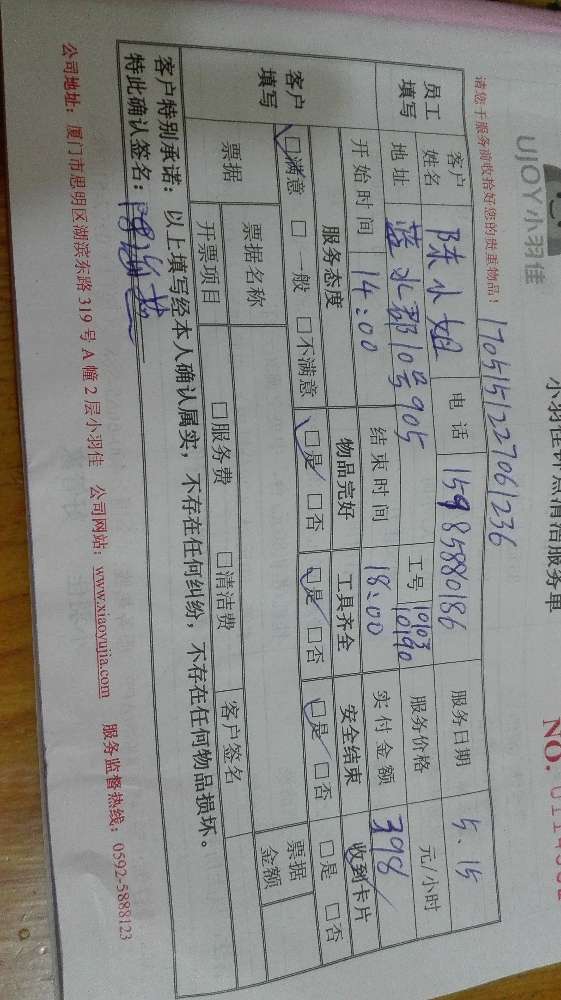 UJOY小羽佳
小羽佳钟点清洁服务单
NO.
请您于服务前收拾好您的贵重物品!
1705151227061236
员工填写 客户姓名 陈小姐 电话 15985880186 服务日期 5.15
地址 蓝水郡10号905 工号 10103 10190 服务价格 元/小时
开始时间 14:00 结束时间 18:00 实付金额 398
客户填写 服务态度 物品完好 工具齐全 安全结束 收到卡片
☑满意 □一般 □不满意 ☑是 □否 ☑是 □否 ☑是 □否 □是 □否
票据 票据名称 客户签名 票据金额
开票项目 □服务费 □清洁费
客户特别承诺:以上填写经本人确认属实,不存在任何纠纷,不存在任何物品损坏。
特此确认签名:
公司地址:厦门市思明区湖滨东路319号A幢2层小羽佳 公司网站:www.xiaoyujia.com 服务监督热线:0592-5888123